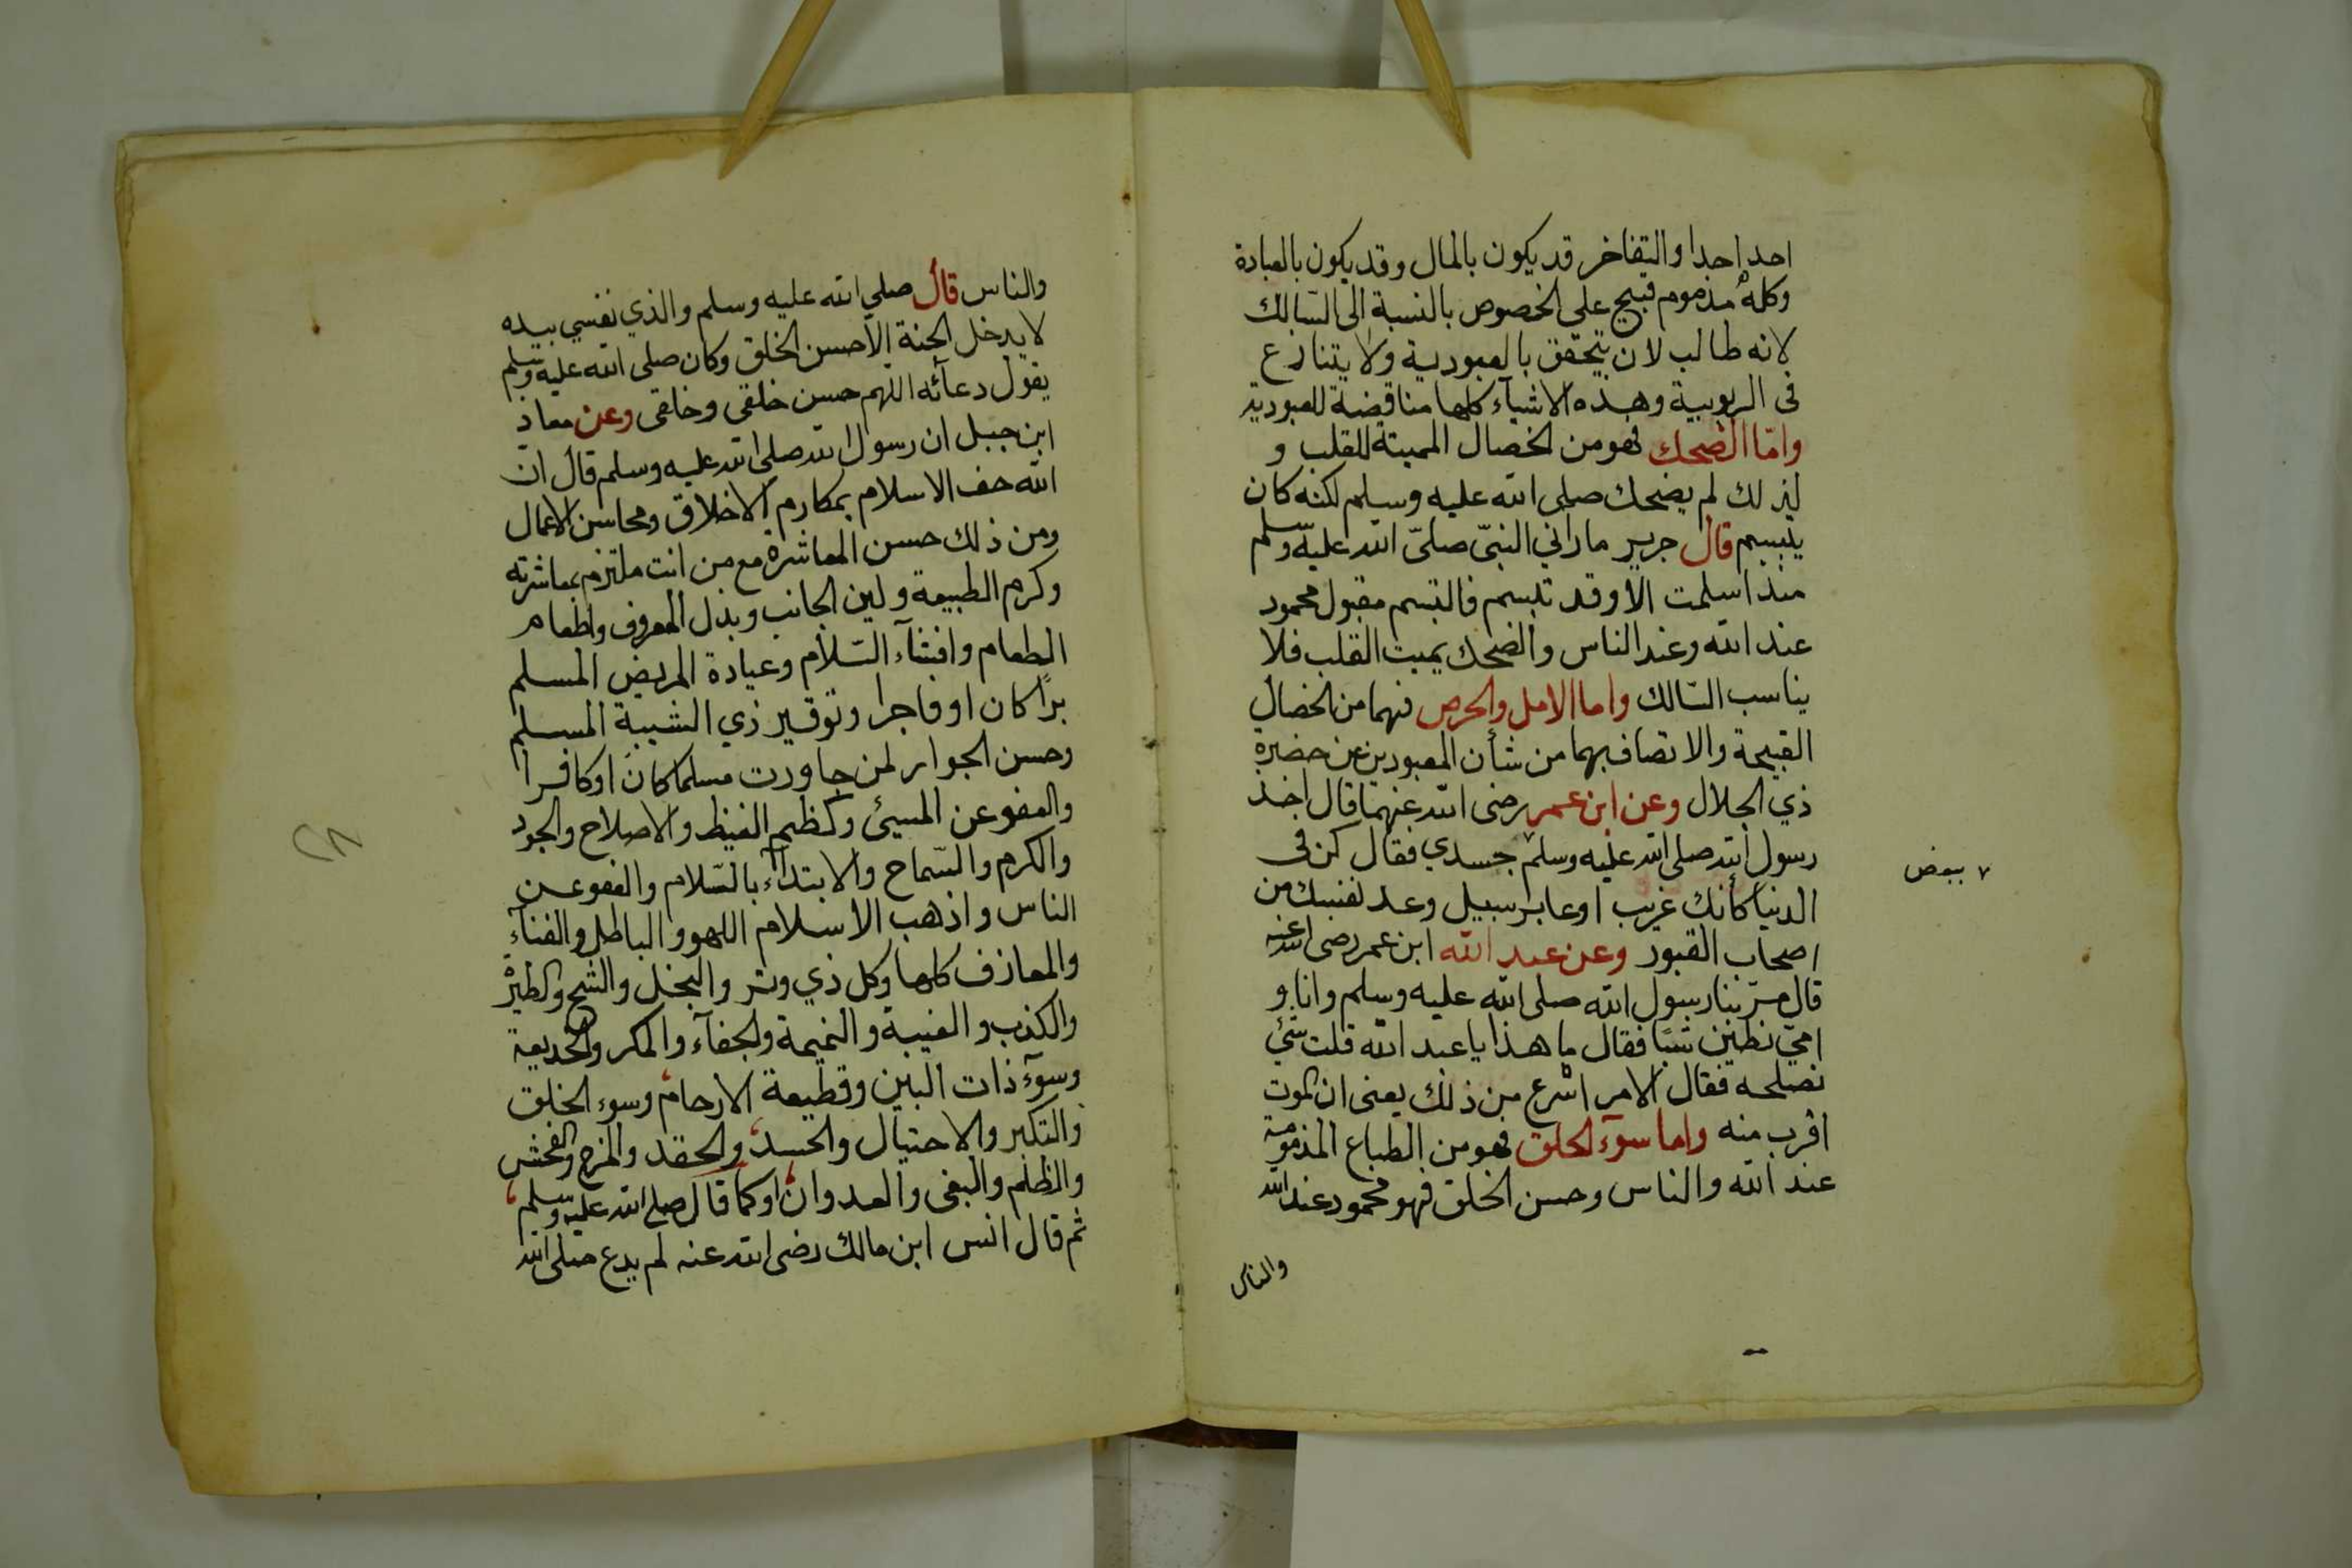 احد احدا والتفاخر قد يكون بالمال وقد يكون بالعبادة
وكله مذموم قبيح على الخصوص بالنسبة الى السّالك
لانه طالب لان يتحقق بالعبودية ولا يتنازع
فى الربوبية وهذه الاشيآء كلها مناقضة للعبودية
وامّا الضحك فهو من الخصال المميتة للقلب و
لذلك لم يضحك صلى الله عليه وسلم لكنه كان
يتبسم قال جرير ما راني النبيّ صلىّ الله عليه وسلم
منذ اسلمت الا وقد تبسم فالتبسم مقبول محمود
عند الله وعند الناس والضحك يميت القلب فلا
يناسب السّالك واما الامل والحرص فهما من الخصال
القبيحة والاتصاف بهما من شأن المعبودين عن حضرة
ذي الجلال وعن ابن عمر رضى الله عنهما قال اخذ
رسول الله صلى الله عليه وسلم ٧ جسدي فقال كن فى
٧ ببعض
الدنيا كأنك غريب او عابر سبيل وعد نفسك من
اصحاب القبور وعن عبد الله ابن عمر رضى الله عنه
قال مرّ بنا رسول الله صلى الله عليه وسلم وانا و
امّي نطين شيًا فقال ما هذا يا عبد الله قلت شئ
نصلحه فقال الامر اسرع من ذلك يعنى ان الموت
اقرب منه واما سوء الخلق فهو من الطباع المذمومة
عند الله والناس وحسن الخلق فهو محمود عند الله
والناس
والناس قال صلى الله عليه وسلم والذي نفسي بيده
لا يدخل الجنة الا حسن الخلق وكان صلى الله عليه وسلم
يقول دعآئه اللهم حسن خلقى وخلقى وعن معاذ
ابن جبل ان رسول الله صلى الله عليه وسلم قال ان
الله حف الاسلام بمكارم الاخلاق ومحاسن الاعمال
ومن ذلك حسن المعاشرة مع من انت ملتزم بمعاشرته
وكرم الطبيعة ولين الجانب وبذل المعروف واطعام
الطعام وافشآء السّلام وعيادة المريض المسلم
برًا كان او فاجرا وتوقير ذي الشيبة المسلم
وحسن الجوار لمن جاورت مسلما كان او كافرا
والعفو عن المسيئ وكظم الغيظ والاصلاح والجود
والكرم والسّماح والابتدآء بالسّلام والعفو عن
الناس واذهب الاسلام اللهو والباطل والغنآء
والمعازف كلها وكل ذي وتر والبخل والشح
والكذب والغيبة والنميمة والجفآء والمكر والخديعة
وسوء ذات البين وقطيعة الارحام وسوء الخلق
والتكبر والاحتيال والحسد والحقد والمزح والفحش
والظلم والبغى والعدوان او كما قال صلى الله عليه وسلم
ثم قال انس ابن مالك رضى الله عنه لم يدع صلى الله
٢٨